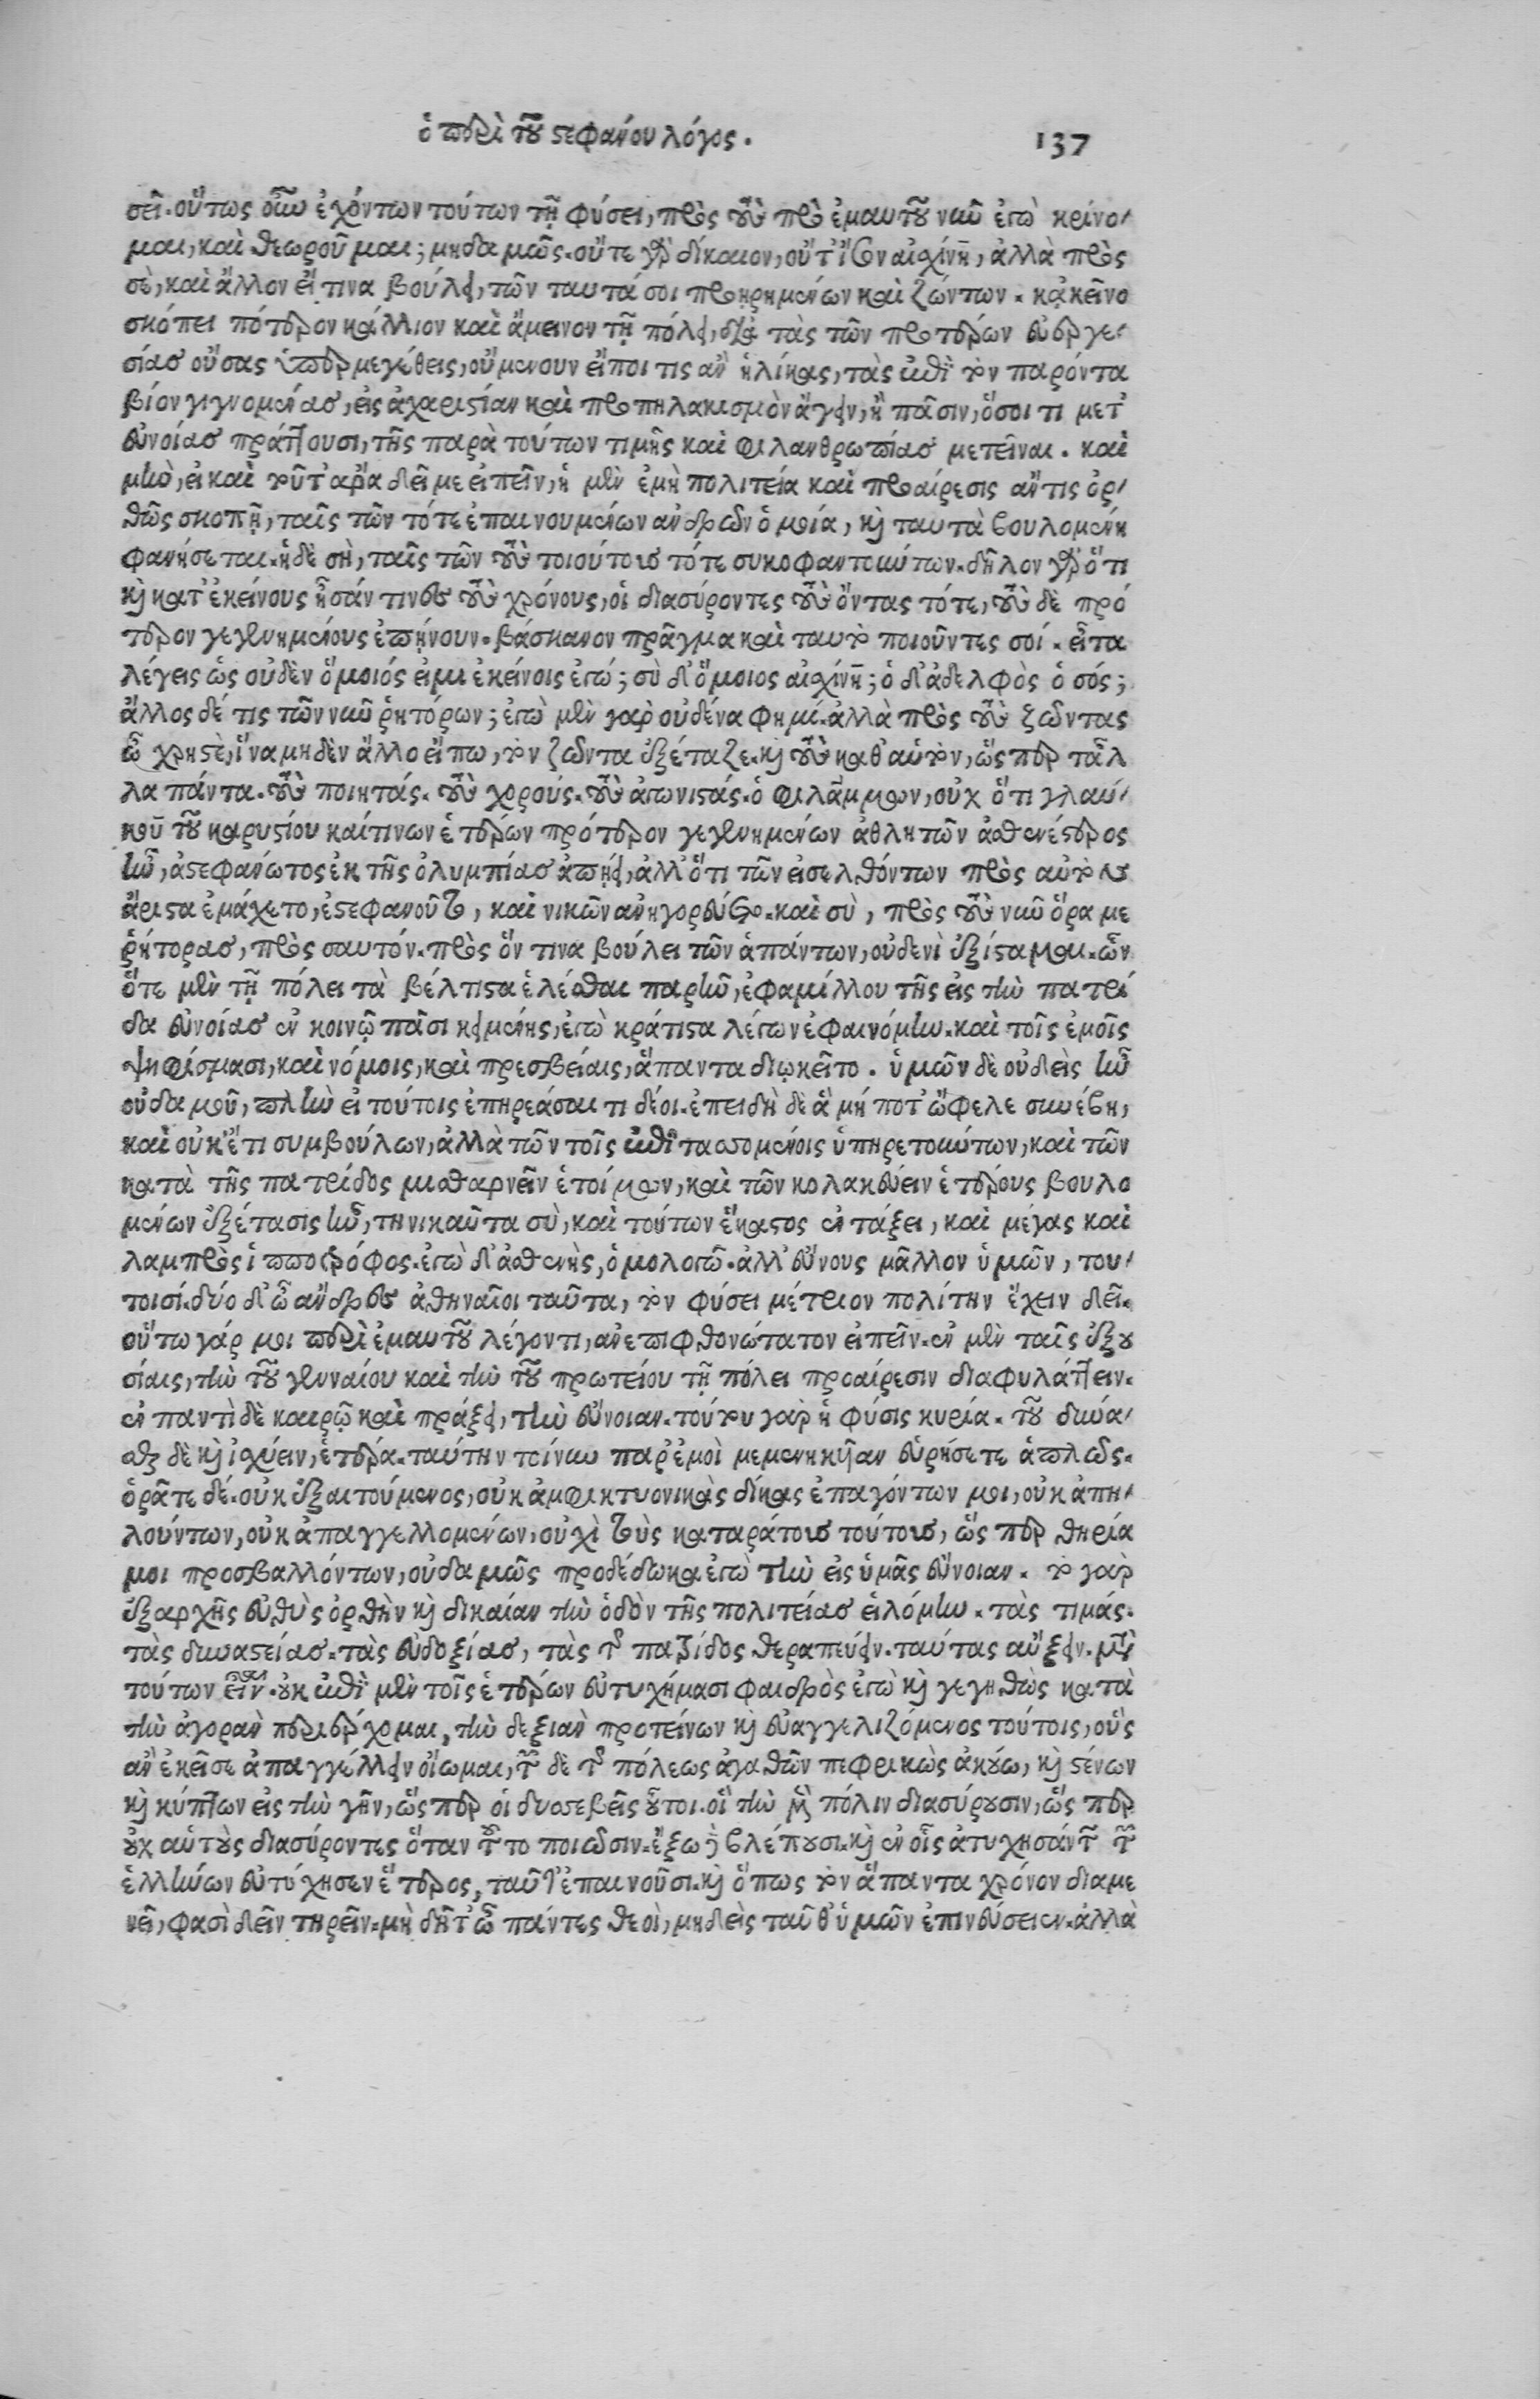 ὁ περὶ τοῦ στεφάνου λόγος. 137
σει. οὕτως οὖν ἐχόντων τούτων τῇ φύσει, πρὸς τοὺς πρὸ ἐμαυτοῦ νῦν ἐγὼ κρίνο-
μαι, καὶ θεωροῦμαι; μηδαμῶς. οὔτε γὰρ δίκαιον, οὔτ' ἴσον αἰσχίνη, ἀλλὰ πρὸς
σὲ, καὶ ἄλλον εἴ τινα βούλει, τῶν ταυτά σοι προηρημένων καὶ ζώντων. κἀκεῖνο
σκόπει πότερον κάλλιον καὶ ἄμεινον τῇ πόλει, διὰ τὰς τῶν προτέρων εὐεργε-
σίας οὔσας ὑπερμεγέθεις, οὐ μὲν οὖν εἴποι τις ἂν ἡλίκας, τὰς ἐπὶ τὸν παρόντα
βίον γιγνομένας, εἰς ἀχαριστίαν καὶ προπηλακισμὸν ἄγειν, ἢ πᾶσιν, ὅσοι τι μετ'
εὐνοίας πράττουσι, τῆς παρὰ τούτων τιμῆς καὶ φιλανθρωπίας μετεῖναι. καὶ
μὴν, εἰ καὶ τοῦτ' ἄρα δεῖ με εἰπεῖν, ἡ μὲν ἐμὴ πολιτεία καὶ προαίρεσις ἄν τις ὀρ-
θῶς σκοπῇ, ταῖς τῶν τότε ἐπαινουμένων ἀνδρῶν ὁμοία, καὶ ταυτὰ βουλομένη
φανήσεται. ἡ δὲ σὴ, ταῖς τῶν τοὺς τοιούτους τότε συκοφαντούντων. δῆλον γὰρ ὅτι
καὶ κατ' ἐκείνους ἦσάν τινες τοὺς χρόνους, οἱ διασύροντες τοὺς ὄντας τότε, τοὺς δὲ πρό
τερον γεγενημένους ἐπῄνουν. βάσκανον πρᾶγμα καὶ ταυτὸ ποιοῦντες σοί. εἶτα
λέγεις ὡς οὐδὲν ὅμοιός εἰμι ἐκείνοις ἐγώ; σὺ δ' ὅμοιος αἰσχίνη; ὁ δ' ἀδελφὸς ὁ σός;
ἄλλος δέ τις τῶν νῦν ῥητόρων; ἐγὼ μὲν γὰρ οὐδένα φημί. ἀλλὰ πρὸς τοὺς ζῶντας
ὦ χρηστὲ, ἵνα μηδὲν ἄλλο εἴπω, τὸν ζῶντα ἐξέταζε. καὶ τοὺς καθ' αὑτὸν, ὥσπερ τἆλ
λα πάντα. τοὺς ποιητάς. τοὺς χορούς. τοὺς ἀγωνιστάς. ὁ φιλάμμων, οὐχ ὅτι γλαύ-
κου τοῦ καρυστίου καί τινων ἑτέρων πρότερον γεγενημένων ἀθλητῶν ἀσθενέστερος
ἦν, ἀστεφάνωτος ἐκ τῆς ὀλυμπίας ἀπῄει, ἀλλ' ὅτι τῶν εἰσελθόντων πρὸς αὐτὸν
ἄριστα ἐμάχετο, ἐστεφανοῦτο, καὶ νικῶν ἀνηγορεύετο. καὶ σὺ, πρὸς τοὺς νῦν ὅρα με
ῥήτορας, πρὸς σαυτόν. πρὸς ὅν τινα βούλει τῶν ἁπάντων, οὐδενὶ ἐξίσταμαι. ὧν
ὅτε μὲν τῇ πόλει τὰ βέλτιστα ἑλέσθαι παρῆν, ἐφαμίλλου τῆς εἰς τὴν πατρί
δα εὐνοίας ἐν κοινῷ πᾶσι κειμένης, ἐγὼ κράτιστα λέγων ἐφαινόμην. καὶ τοῖς ἐμοῖς
ψηφίσμασι, καὶ νόμοις, καὶ πρεσβείαις, ἅπαντα διῳκεῖτο. ὑμῶν δὲ οὐδεὶς ἦν
οὐδαμοῦ, πλὴν εἰ τούτοις ἐπηρεάσαι τι δέοι. ἐπειδὴ δὲ ἃ μή ποτ' ὤφελε συνέβη,
καὶ οὐκ ἔτι συμβούλων, ἀλλὰ τῶν τοῖς ἐπιταττομένοις ὑπηρετούντων, καὶ τῶν
κατὰ τῆς πατρίδος μισθαρνεῖν ἑτοίμων, καὶ τῶν κολακεύειν ἑτέρους βουλο
μένων ἐξέτασις ἦν, τηνικαῦτα σὺ, καὶ τούτων ἕκαστος ἐν τάξει, καὶ μέγας καὶ
λαμπρὸς ἱπποτρόφος. ἐγὼ δ' ἀσθενὴς, ὁμολογῶ. ἀλλ' εὔνους μᾶλλον ὑμῶν, του-
τοισί. δύο δ' ὦ ἄνδρες ἀθηναῖοι ταῦτα, τὸν φύσει μέτριον πολίτην ἔχειν δεῖ.
οὕτω γάρ μοι περὶ ἐμαυτοῦ λέγοντι, ἀνεπιφθονώτατον εἰπεῖν. ἐν μὲν ταῖς ἐξου
σίαις, τὴν τοῦ γενναίου καὶ τὴν τοῦ πρωτείου τῇ πόλει προαίρεσιν διαφυλάττειν.
ἐν παντὶ δὲ καιρῷ καὶ πράξει, τὴν εὔνοιαν. τούτου γὰρ ἡ φύσις κυρία. τοῦ δύνα-
σθαι δὲ καὶ ἰσχύειν, ἑτέρα. ταύτην τοίνυν παρ' ἐμοὶ μεμενηκυῖαν εὑρήσετε ἁπλῶς.
ὁρᾶτε δέ. οὐκ ἐξαιτούμενος, οὐκ ἀμφικτυονικὰς δίκας ἐπαγόντων μοι, οὐκ ἀπει-
λούντων, οὐκ ἀπαγγελλομένων, οὐχὶ τοὺς καταράτους τούτους, ὥσπερ θηρία
μοι προσβαλλόντων, οὐδαμῶς προδέδωκα ἐγὼ τὴν εἰς ὑμᾶς εὔνοιαν. τὸ γὰρ
ἐξαρχῆς εὐθὺς ὀρθὴν καὶ δικαίαν τὴν ὁδὸν τῆς πολιτείας εἱλόμην. τὰς τιμάς.
τὰς δυναστείας. τὰς εὐδοξίας, τὰς τῆς πατρίδος θεραπεύειν. ταύτας αὔξειν. μετὰ
τούτων εἶναι. οὐκ ἐπὶ μὲν τοῖς ἑτέρων εὐτυχήμασι φαιδρὸς ἐγὼ καὶ γεγηθὼς κατὰ
τὴν ἀγορὰν περιέρχομαι, τὴν δεξιὰν προτείνων καὶ εὐαγγελιζόμενος τούτοις, οὓς
ἂν ἐκεῖσε ἀπαγγέλλειν οἴωμαι, τῶν δὲ τῆς πόλεως ἀγαθῶν πεφρικὼς ἀκούω, καὶ στένων
καὶ κύπτων εἰς τὴν γῆν, ὥσπερ οἱ δυσσεβεῖς οὗτοι. οἳ τὴν μὲν πόλιν διασύρουσιν, ὥσπερ
οὐχ αὑτοὺς διασύροντες ὅταν τοῦτο ποιῶσιν. ἔξω δὲ βλέπουσι. καὶ ἐν οἷς ἀτυχησάντων τῶν
ἑλλήνων εὐτύχησεν ἕτερος, ταῦτ' ἐπαινοῦσι. καὶ ὅπως τὸν ἅπαντα χρόνον διαμε
νεῖ, φασὶ δεῖν τηρεῖν. μὴ δῆτ' ὦ πάντες θεοὶ, μηδεὶς ταῦθ' ὑμῶν ἐπινεύσειεν. ἀλλὰ